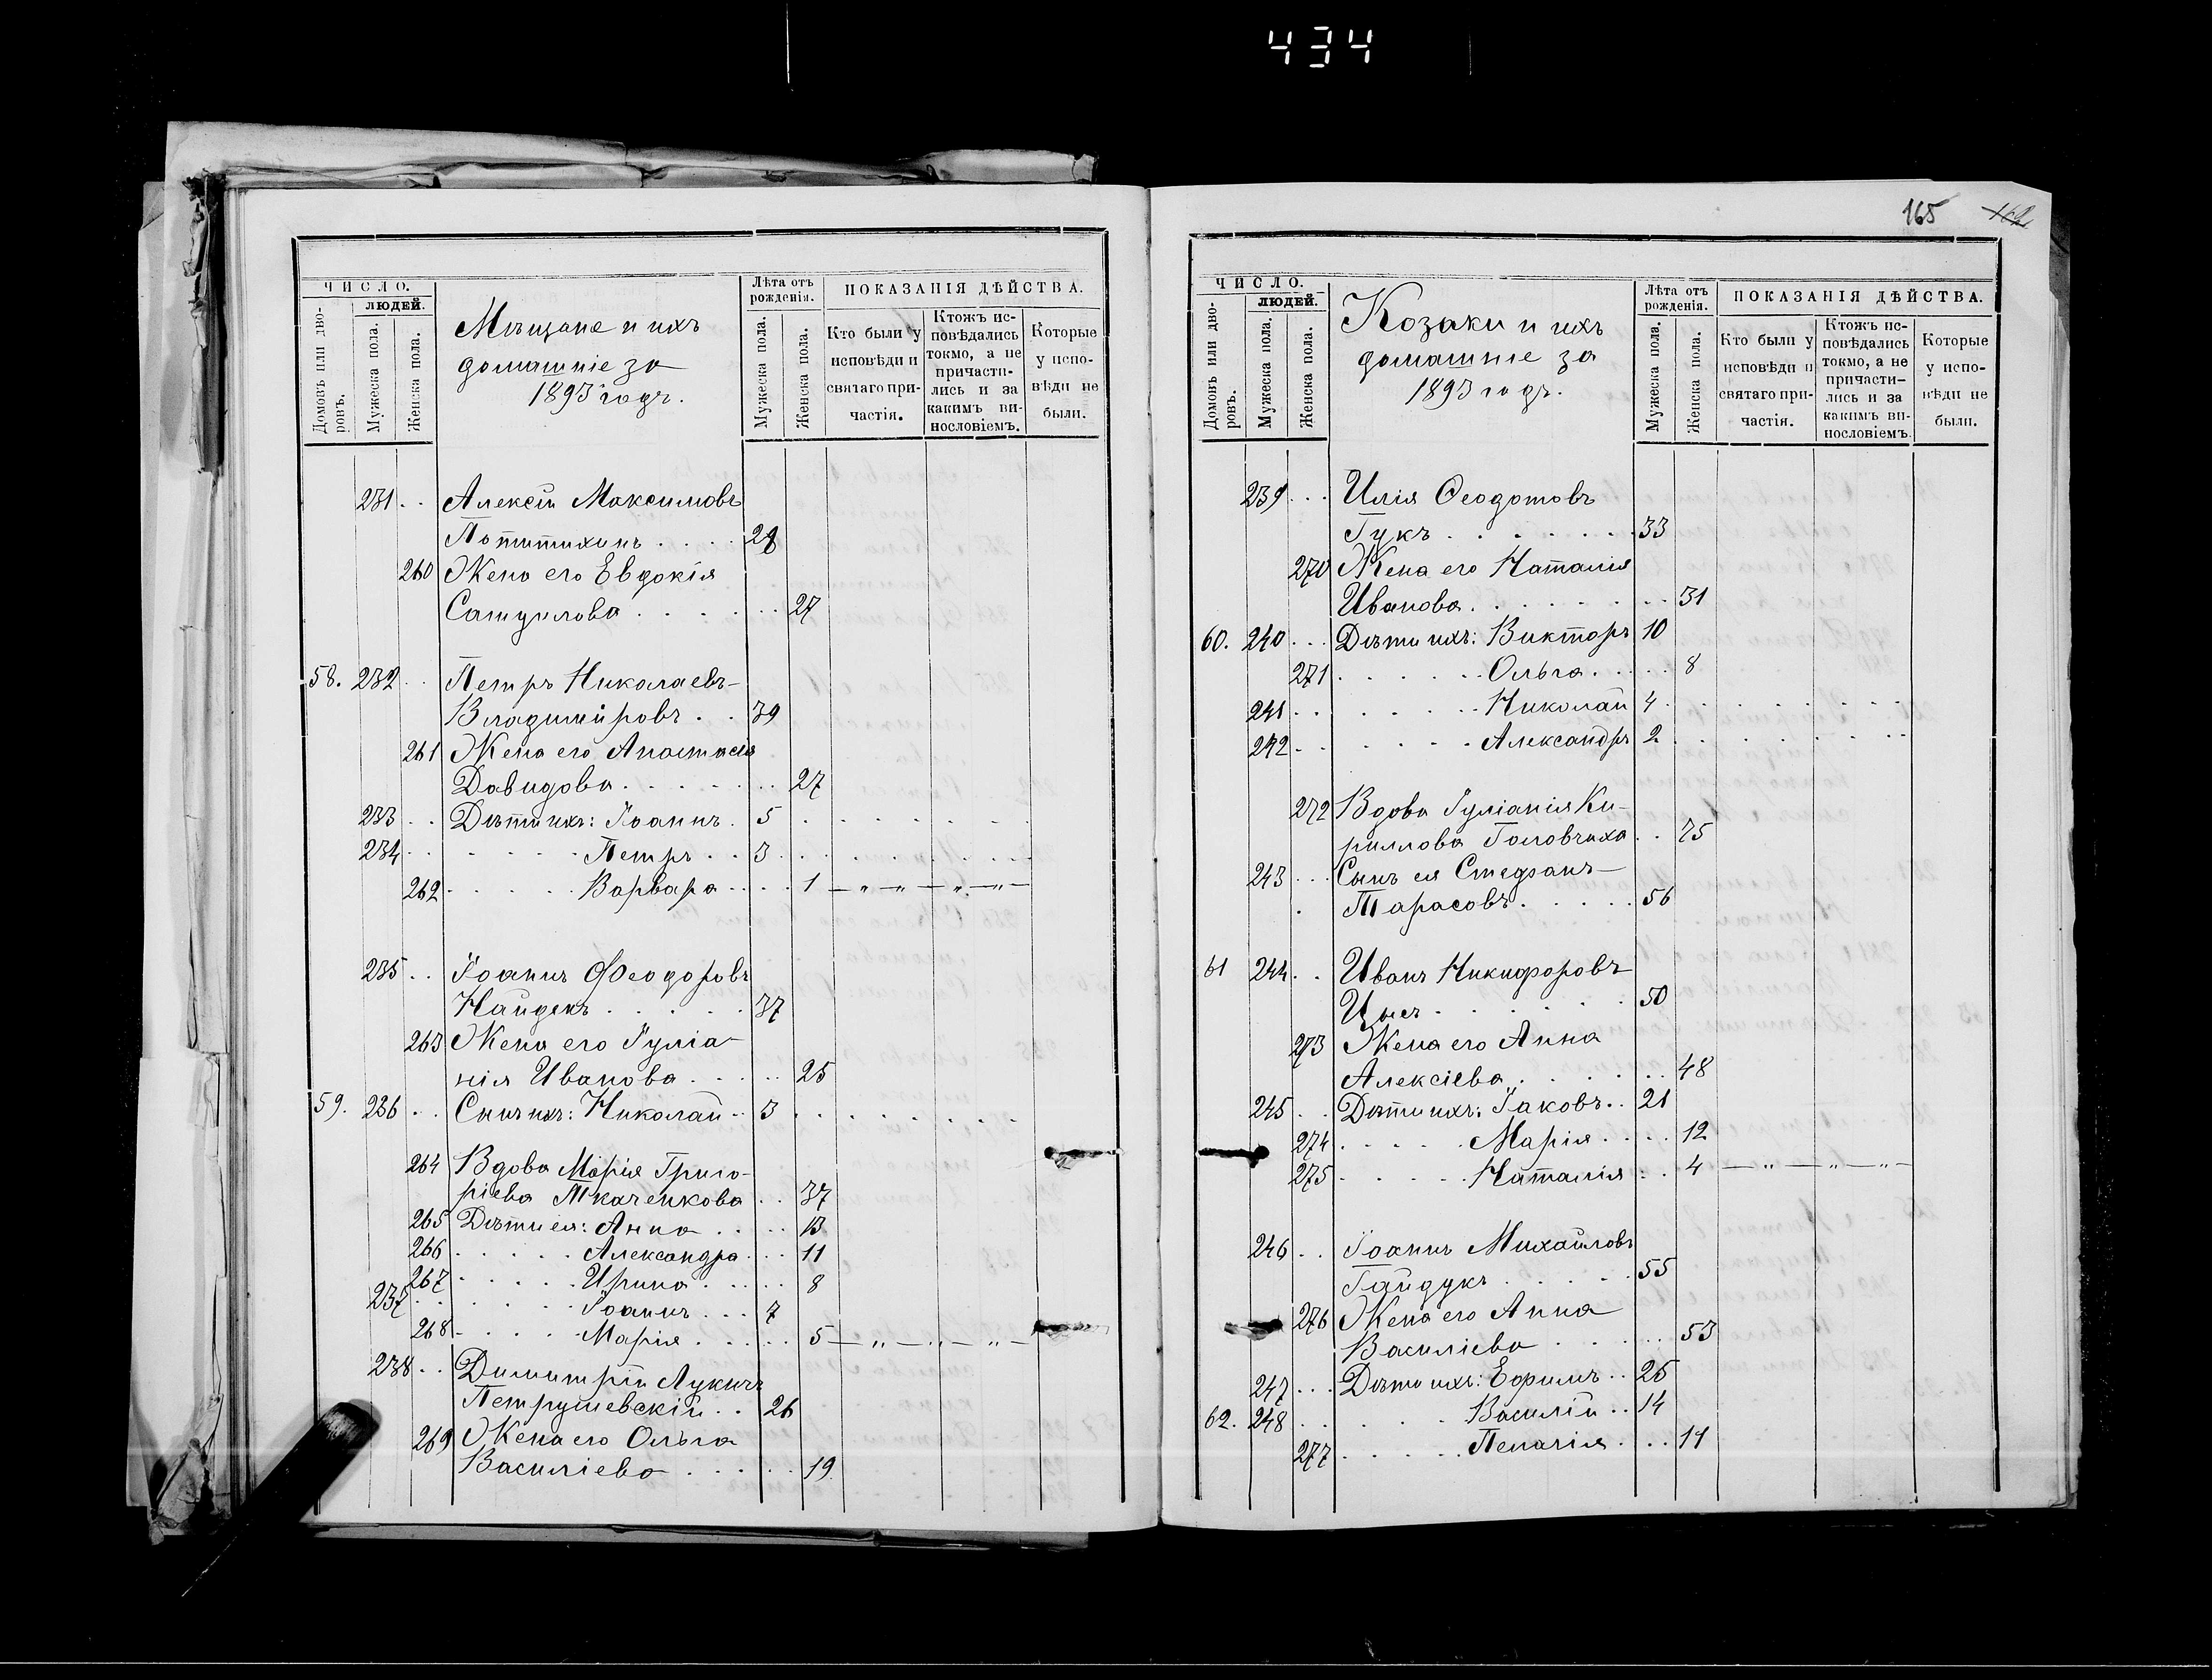 434
ЧИСЛО.
Домовъ или дворовъ.
ЛЮДЕЙ.
Мужеска пола.
Женска пола.
Мѣщане и ихъ
домашніе за
1893 годъ.
Лѣта отъ
рожденія.
Мужеска пола.
Женска пола.
ПОКАЗАНІЯ ДѢЙСТВА.
Кто были у
исповѣди и
святаго при-
частія.
Ктожъ ис-
повѣдались
токмо, а не
причасти-
лись и за
какимъ ви-
нословіемъ.
Которые
у испо-
вѣди не
были.
231 . . Алексій Максимовъ
. . . . 28
260 Жена его Евдокія
. . . . 27
58. 232 . . Петръ Николаевъ
Владиміровъ . . 39
261 Жена его Анастасія
Давидова . . . . 27
233 . . Дѣти ихъ: Іоаннъ . 5
234 . . Петръ . . 3
262 . . Варвара . . 1 — „ — „ — „ — „ —
235 . . Іоаннъ Ѳеодоровъ
Найдекъ . . . . 37
263 Жена его Іуліа-
нія Иванова . . . . 25
59. 236 . . Сынъ ихъ: Николай . . 3
264 Вдова Марія Григо-
ріева Ткаченкова . . 37
265 Дѣти ея: Анна . . . . 13
266 . . . . Александра . . 11
267 . . . . Ирина . . . . 8
237 . . . . Іоаннъ . . . 7
268 . . . . Марія . . . . 5 — „ — „ — „ —
238 . . Димитрій Лукичъ
Петрушевскій . . 26
269 Жена его Ольга
Василіева . . . . 19
165 162
ЧИСЛО.
Домовъ или дворовъ.
ЛЮДЕЙ.
Мужеска пола.
Женска пола.
Козаки и ихъ
домашніе за
1893 годъ.
Лѣта отъ
рожденія.
Мужеска пола.
Женска пола.
ПОКАЗАНІЯ ДѢЙСТВА.
Кто были у
исповѣди и
святаго при-
частія.
Ктожъ ис-
повѣдались
токмо, а не
причасти-
лись и за
какимъ ви-
нословіемъ.
Которые
у испо-
вѣди не
были.
239 . . . Илія Ѳеодотовъ
Гукъ . . . . 33
270 Жена его Наталія
Иванова . . . . 31
60. 240 . . . Дѣти ихъ: Викторъ 10
271 . . . . Ольга . . . . 8
241 . . . . Николай 4
242 . . . . Александръ 2
272 Вдова Іуліанія Ки-
риллова Головчиха . . 75
243 . . . Сынъ ея Стефанъ
Тарасовъ . . . . 56
61 244 . . Иванъ Никифоровъ
Цысь . . . . 50
273 Жена его Анна
Алексіева . . . . 48
245 . . Дѣти ихъ: Іаковъ . . 21
274 . . . . Марія . . . . 12
275 . . . . Наталія . . 4 — „ — „ — „ —
246 . . Іоаннъ Михайловъ
Гайдукъ . . . . 55
276 Жена его Анна
Василіева . . . . 53
247 . . . Дѣти ихъ: Ефимъ . . 25
62. 248 . . . . Василій . . 14
277 . . . . Пелагія . . . 11